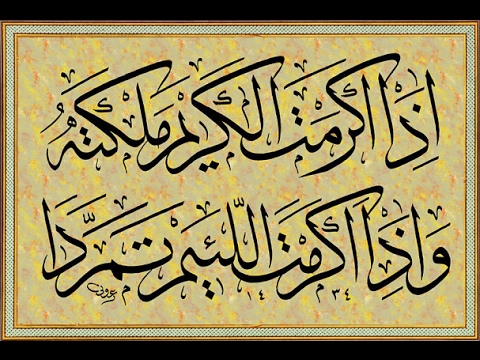 اِذَا اَكْرَمْتَ الْكَرِيمَ مَلَكْتَهُ
وَاِذَا اَكْرَمْتَ اللَّئِيمَ تَمَرَّدَا